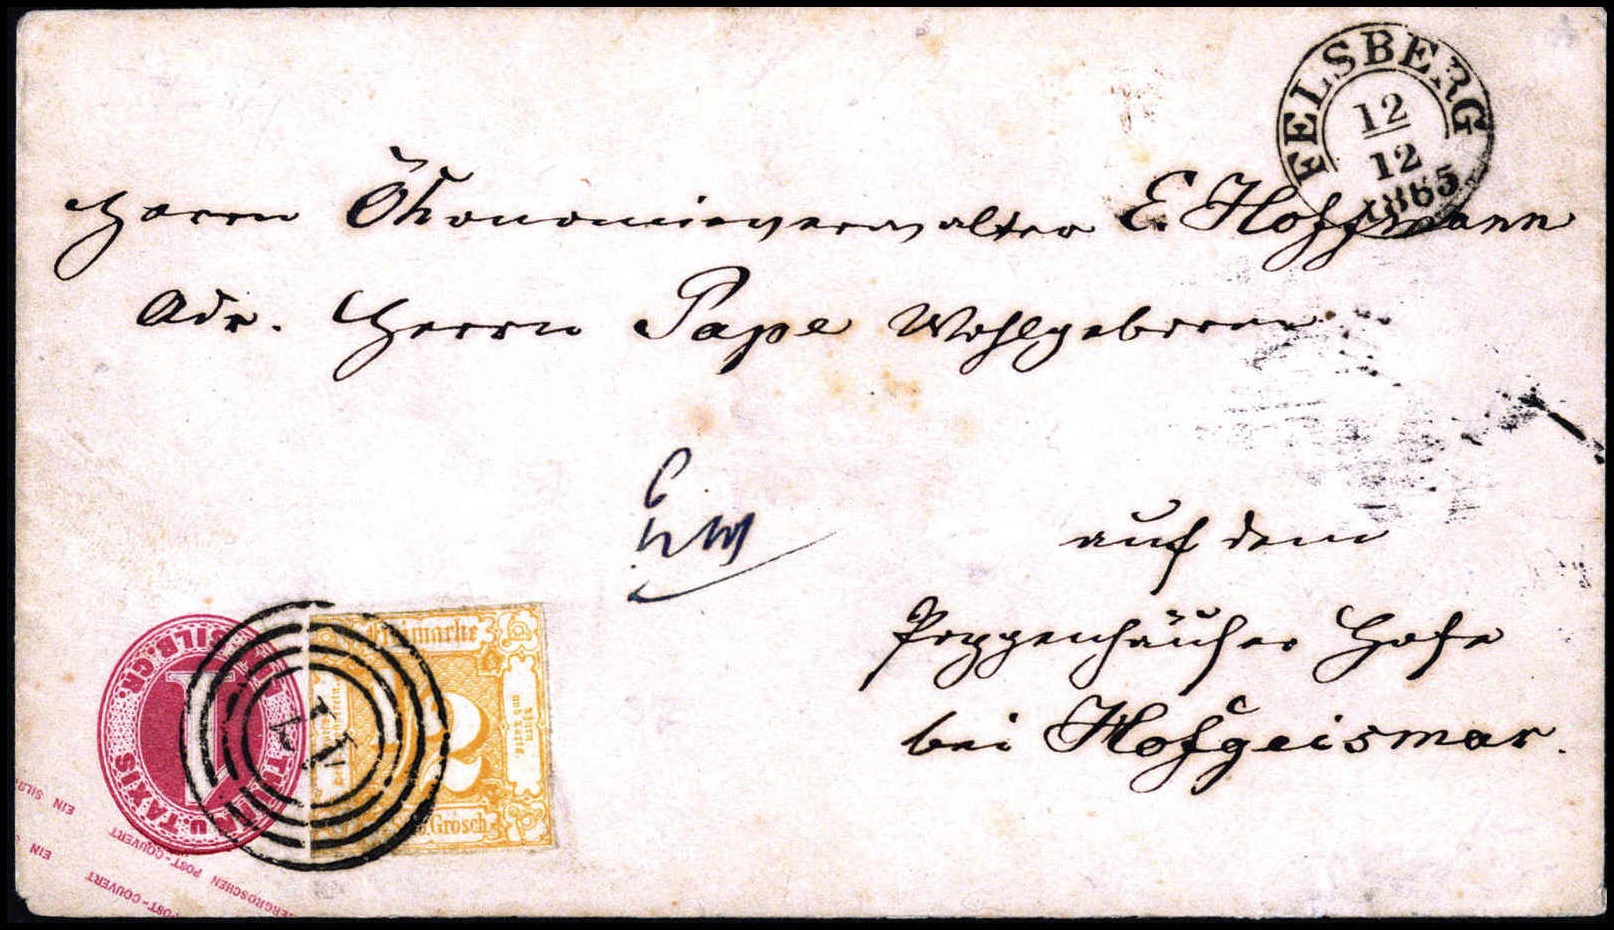 FELSBERG
12
12
1865
Herrn Ökonomieverwalter E. Hoffmann
Adr. Herrn Pape Wohlgeboren
auf dem
Poppenhäuser Hofe
bei Hofgeismar.
EIN SILB.GR.
THURN U. TAXIS
1
Freimarke
2
Silb. Grosch.
Thurn
und Taxis.
EIN SILB
POST-COUVERT
EIN
BERGROSCHEN POST-COUVERT